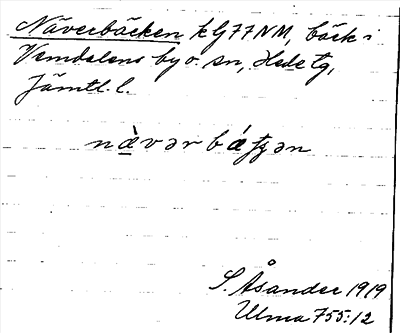 Näverbäcken kG77NM, bäck i
Vemdalens by o. sn, Hede tg,
Jämtl. l.
nàvər báʈʂən
S. Åsander 1919
Ulma 755:12